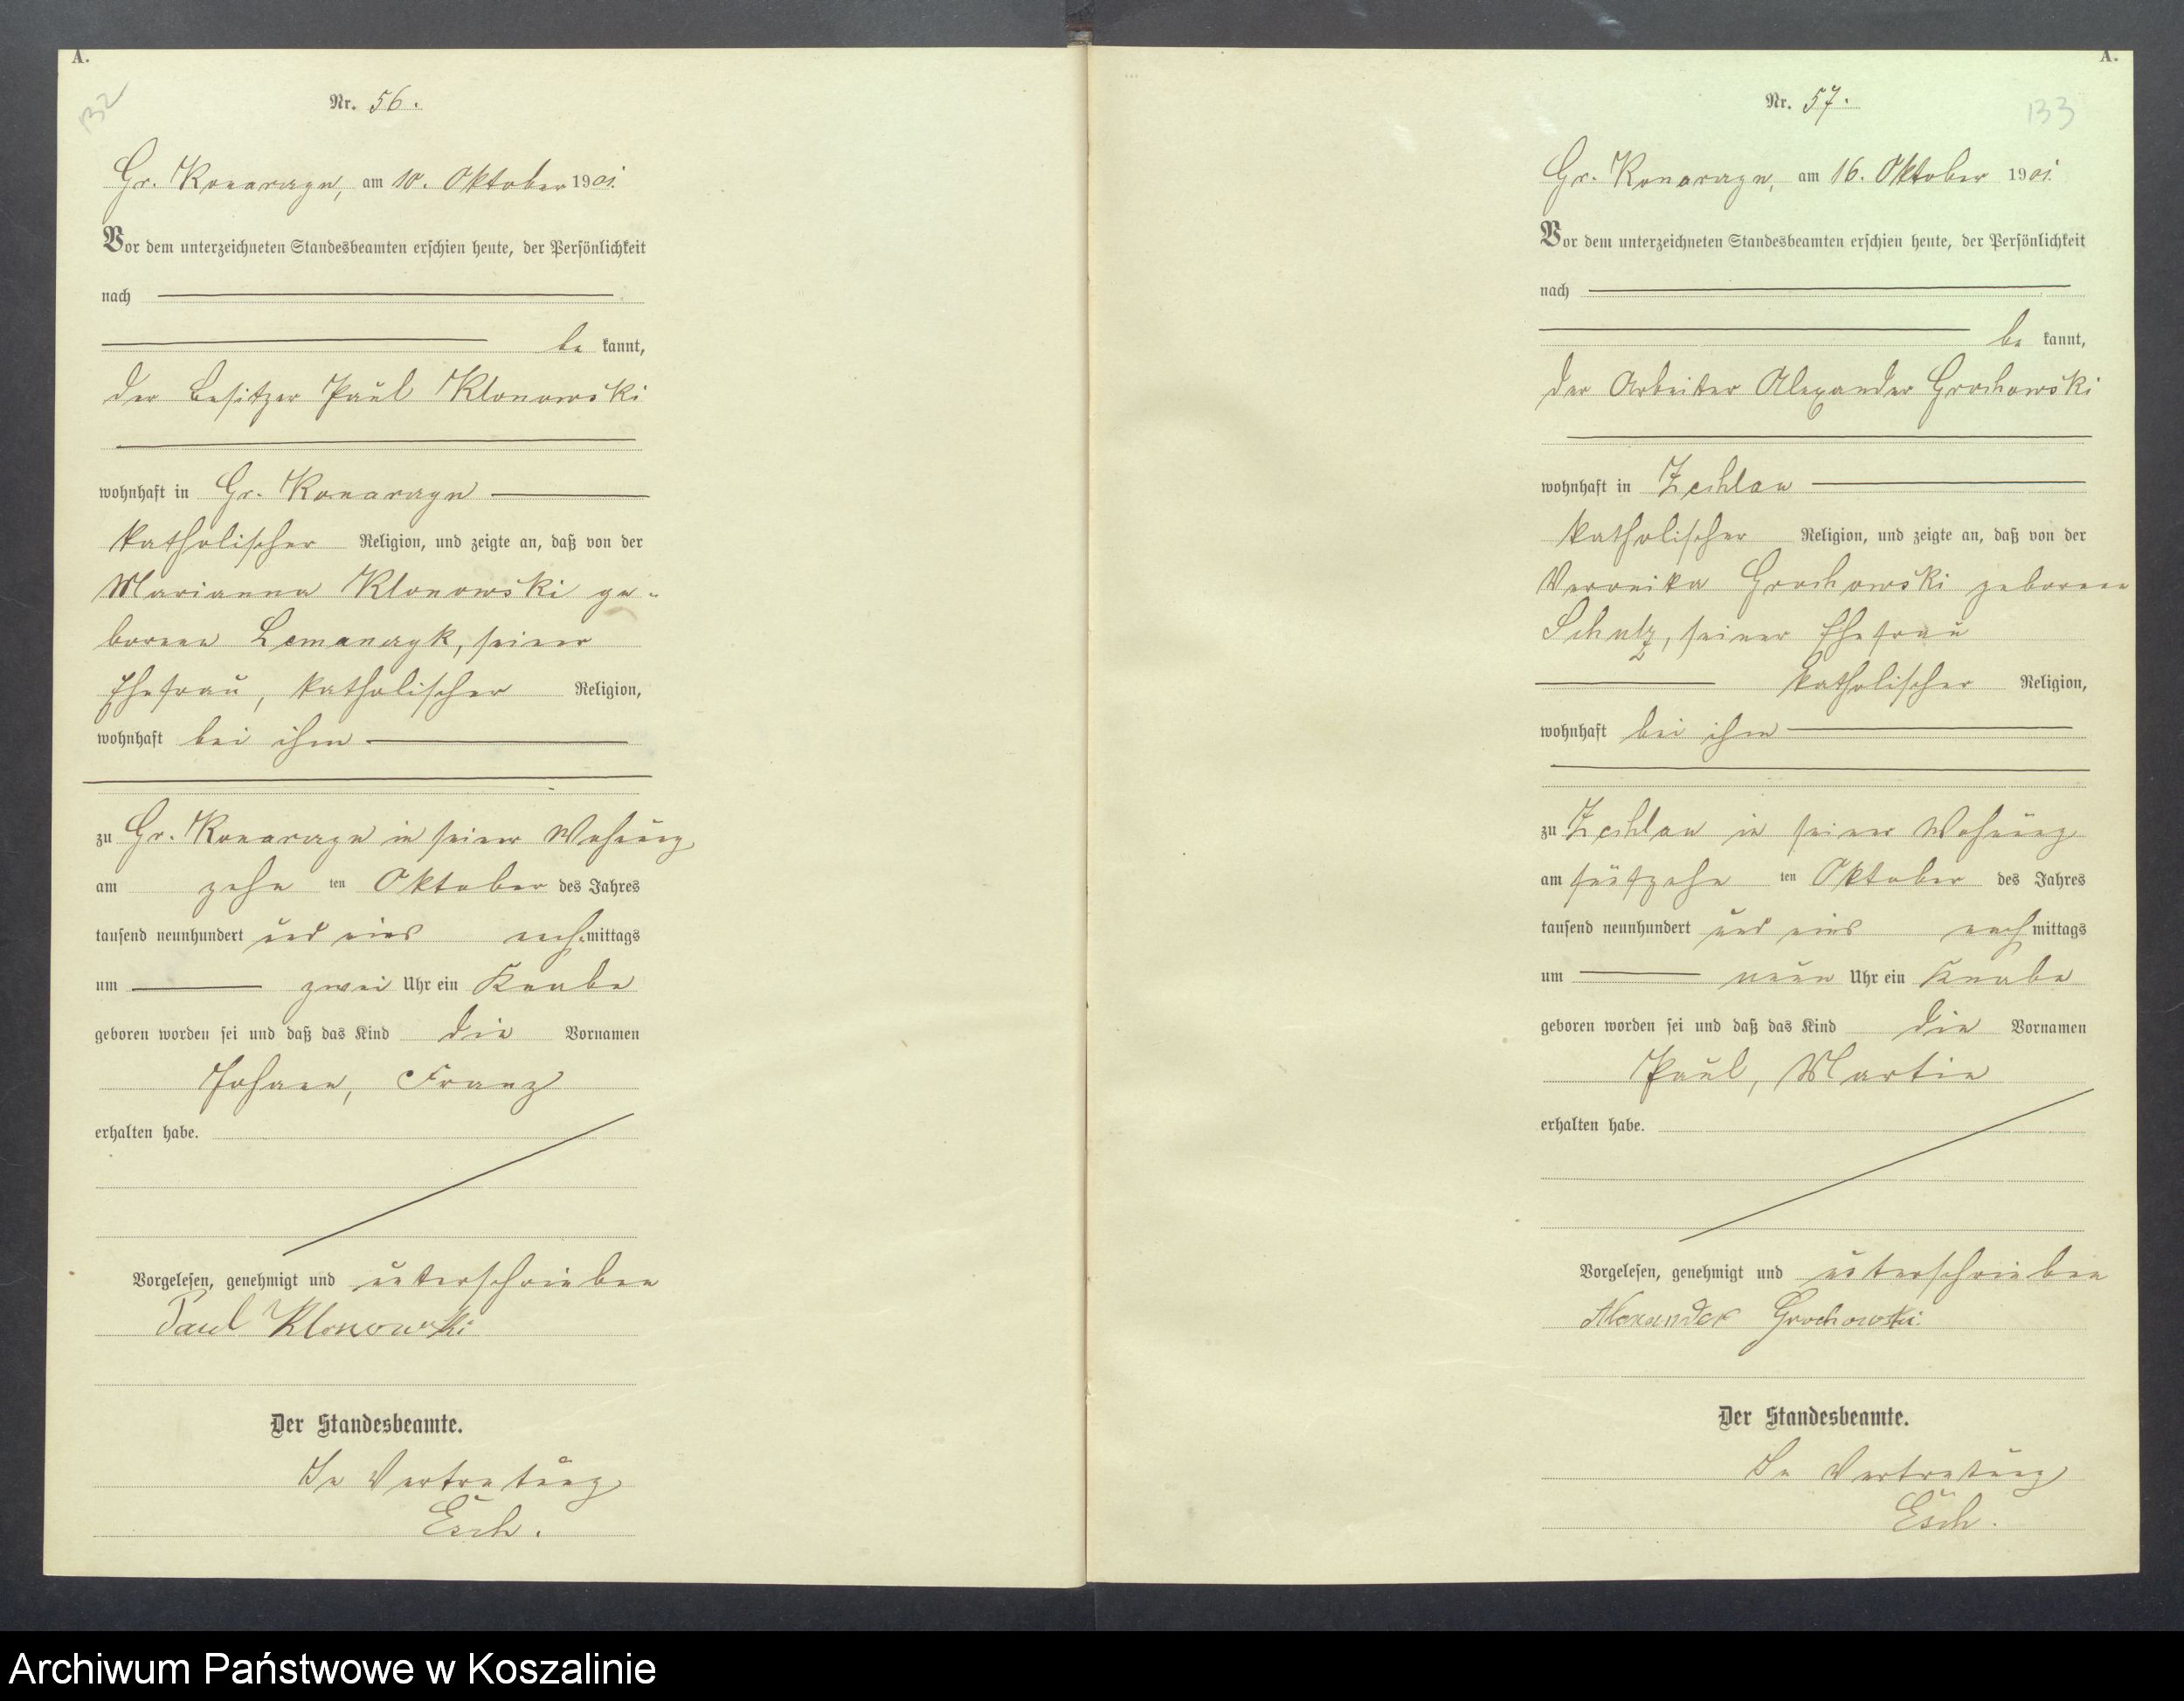 A.
132
Nr. 56.
Gr. Konarczyn, am 10. Oktober 1901.
Vor dem unterzeichneten Standesbeamten erschien heute, der Persönlichkeit
nach
be kannt,
der Besitzer Paul Klonowski
wohnhaft in Gr. Konarczyn
katholischer Religion, und zeigte an, daß von der
Marianna Klonowski ge-
borene Lemanczyk, seiner
Ehefrau, katholischer Religion,
wohnhaft bei ihm
zu Gr. Konarczyn in seiner Wohnung
am zehn ten Oktober des Jahres
tausend neunhundert und eins nach mittags
um zwei Uhr ein Knabe
geboren worden sei und daß das Kind die Vornamen
Johann, Franz
erhalten habe.
Vorgelesen, genehmigt und unterschrieben
Paul Klonowski
Der Standesbeamte.
In Vertretung
Esch.
A.
133
Nr. 57.
Gr. Konarczyn, am 16. Oktober 1901.
Vor dem unterzeichneten Standesbeamten erschien heute, der Persönlichkeit
nach
be kannt,
der Arbeiter Alexander Grochowski
wohnhaft in Zechlau
katholischer Religion, und zeigte an, daß von der
Veronika Grochowski geborene
Schulz, seiner Ehefrau
katholischer Religion,
wohnhaft bei ihm
zu Zechlau in seiner Wohnung
am fünfzehn ten Oktober des Jahres
tausend neunhundert und eins nach mittags
um neun Uhr ein Knabe
geboren worden sei und daß das Kind die Vornamen
Paul, Martin
erhalten habe.
Vorgelesen, genehmigt und unterschrieben
Alexander Grochowski.
Der Standesbeamte.
In Vertretung
Esch.
Archiwum Państwowe w Koszalinie